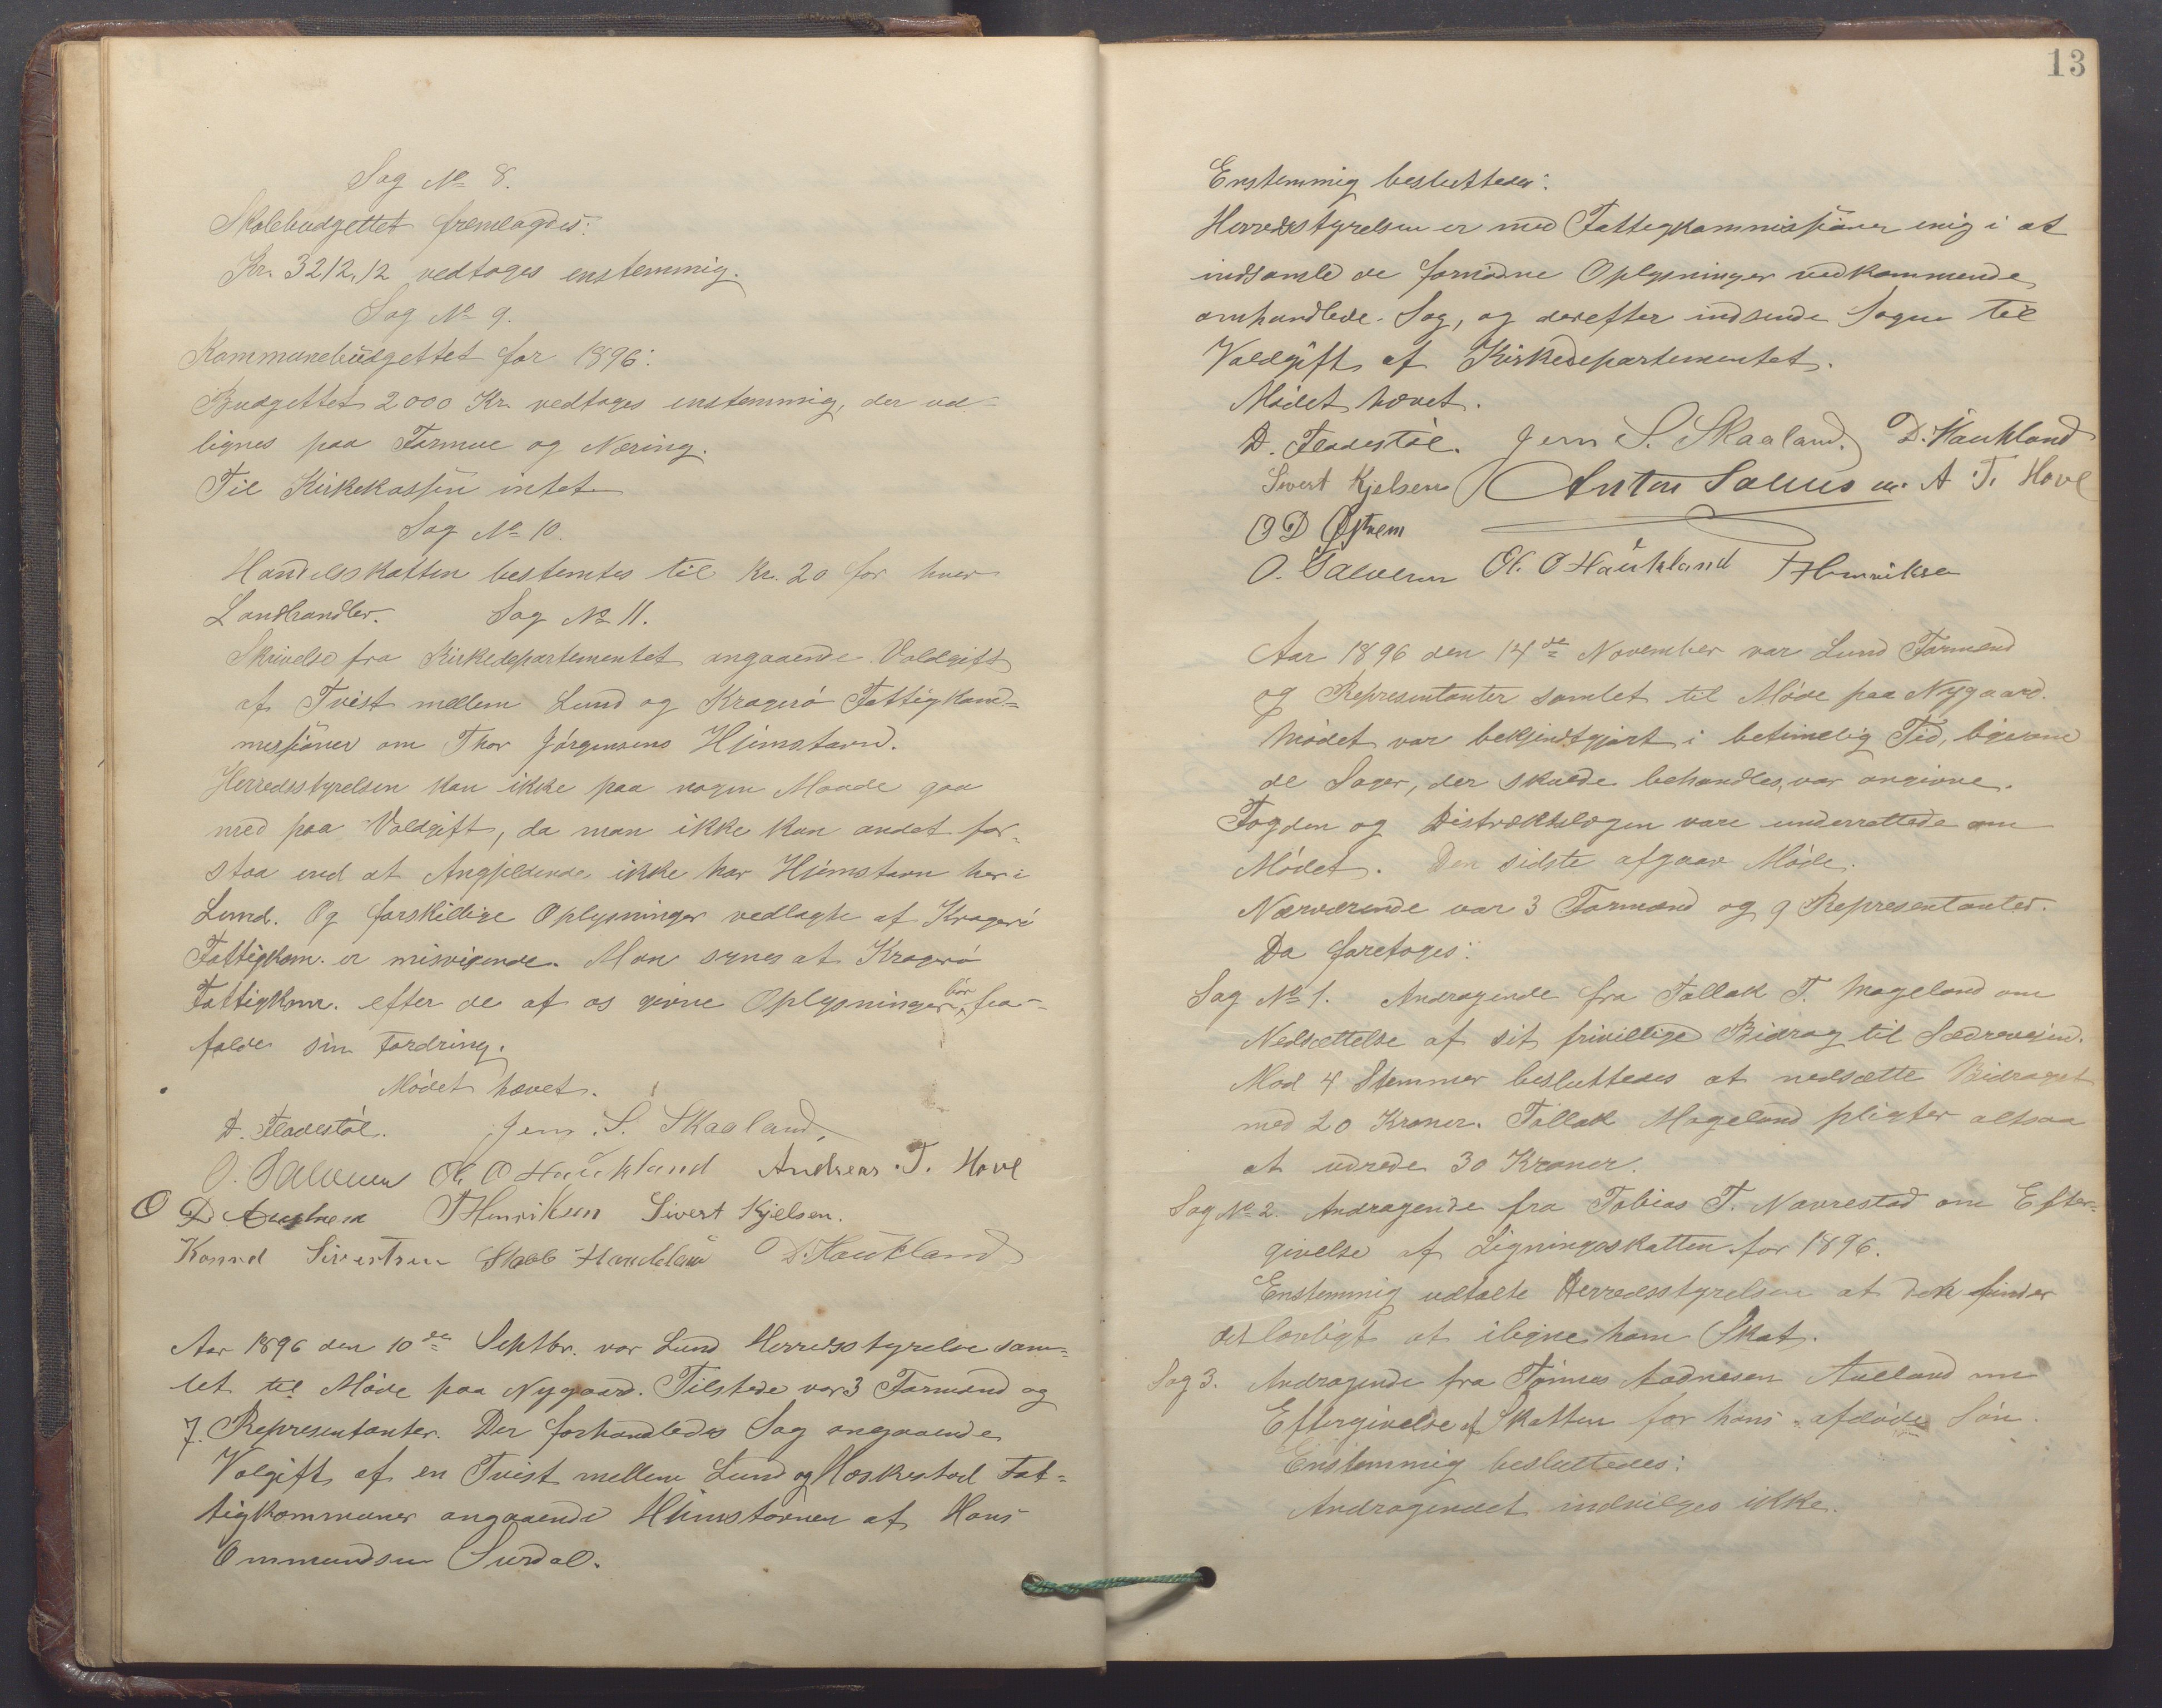 Sag No 8.
Skolebudgettet fremlagdes:
Kr. 3212,12 vedtoges enstemmig.
Sag No 9.
Kommunebudgettet for 1896:
Budgettet 2000 Kr. vedtoges enstemmig, der ud-
lignes paa Formue og Næring.
Til Kirkekassen intet
Sag No 10.
Handelsskatten bestemtes til Kr. 20 for hver
Landhandler. Sag No 11.
Skrivelse fra Kirkedepartementet angaaende Voldgift
af Tvist mellem Lund og Kragerö Fattigkom=
mesjöner om Thor Jörgensens Hjemstavn.
Herredsstyrelsen kan ikke paa nogen Maade gaa
med paa Voldgift, da man ikke kan andet for-
staa end at Angjeldende ikke har Hjemstavn her i
Lund. Og forskillige Oplysninger vedlagte af Kragerö
Fattigkom. er misvisende. Man synes at Kragerö
Fattigkom. efter de af os givne Oplysninger bör fra-
falde sin Fordring.
Mödet hævet.
D. Fladestöl. Jens. S. Skaaland.
O. Salvesen Ol. O Haukland Andreas. T. Hove
O D THenriksen Sivert Kjelsen.
Konrad Sivertsen D. Haukland
Aar 1896 den 10de Septbr. var Lund Herredsstyrelse sam=
let til Möde paa Nygaard. Tilstede var 3 Formænd og
7. Representanter. Der forhandledes Sag angaaende
Volgift af en Tvist mellem Lund og Heskestad Fat=
tigkommuner angaaende Hjemstavnen af Hans
Ommundsen Surdal.
13
Enstemmig besluttedes:
Herredsstyrelsen er med Fattegkommissjönen enig i at
indsamle de fornödne Oplysninger vedkommende
omhandlede Sag, og derefter indsende Sagen til
Voldgift af Kirkedepartementet.
Mödet hævet.
D. Fladestöl. Jens S. Skaaland. D. Haukland
Sivert Kjelsen A T. Hove
O D Østrem
O. Salvesen Ol. O Haukland THenriksen
Aar 1896 den 14de November var Lund Formænd
og Representanter samlet til Möde paa Nygaard.
Mödet var bekjendtgjort i betimelig Tid, ligesom
de Sager, der skulde behandles, var angivne.
Fogden og Distriktslægen vare underrettede om
Mödet. Den sidste afgaar Möde.
Nærværende var 3 Formænd og 9 Representanter.
Da foretoges:
Sag No 1. Andragende fra Tollak T. Mageland om
Nedsættelse af sit frivillige Bidrag til Sædravejen.
Mod 4 Stemmer besluttedes at nedsætte Bidraget
med 20 Kroner. Tollak Mageland pligter altsaa
at udrede 30 Kroner.
Sag No 2. Andragende fra Tobias T. Navrestad om Efter-
givelse af Ligningsskatten for 1896.
Enstemmig udtalte Herredsstyrelsen at den finder
det lovligt at iligne ham Skat.
Sag 3. Andragende fra Tönnes Aadnesen Aueland om
Eftergivelse af Skatten for hans afdöde Sön.
Enstemmig besluttedes:
Andragendet indvilges ikke.